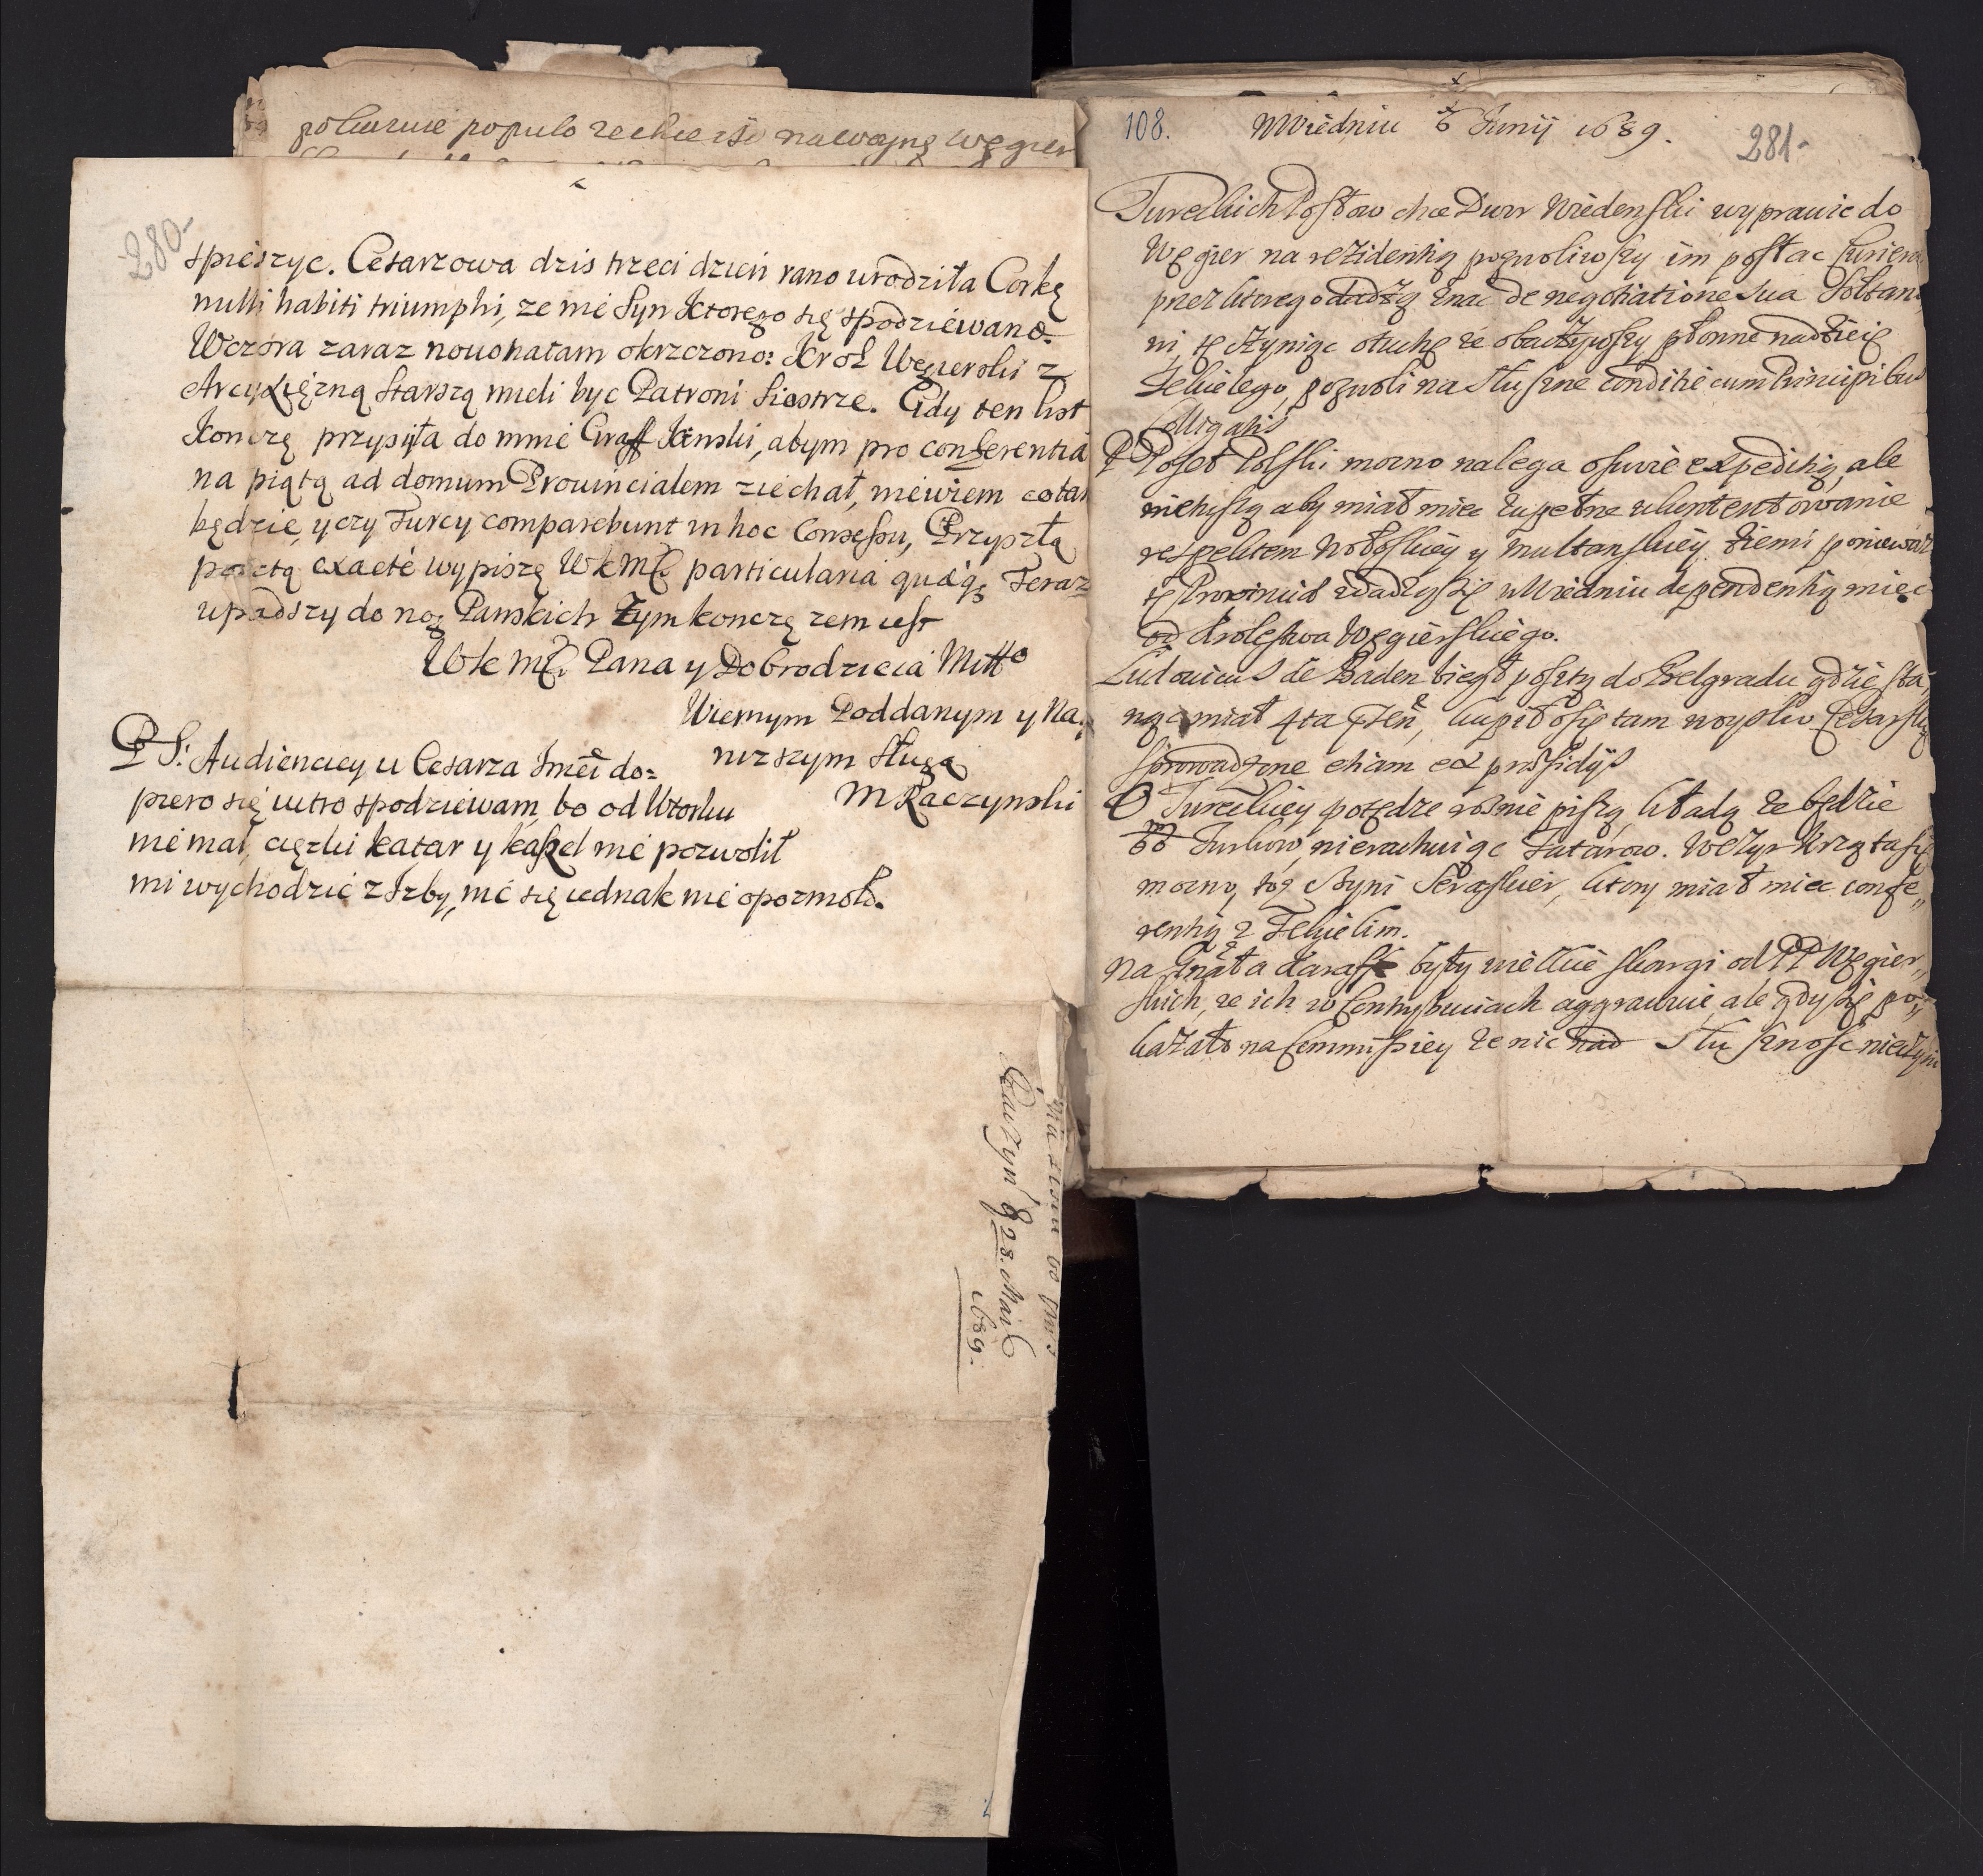 pokaznie populo zechce iść na woynę węgier
280.
spieszyc. Cesarzowa dzis trzeci dzień rano urodziła Corkę
nulli habiti triumphi, ze nie Syn ktorego się spodziewano.
Wczora zaraz nouonatam okrzczono: Krol Węgierski z
Arcyxięzną starszą mieli byc Patroni Siostrze. Gdy ten list
Konczę przysyła do mnie Graff Kinski, abym pro conferentia
na piątą ad domum Prouincialem ziechał, niewiem co tam
będzie, y czy Turcy comparebunt in hoc Consessu, Przyszłą
pocztą exacté wypiszę WKMći particularia quaeq; Teraz
upadszy do nog Panskich tym konczę zem iest
WKMći Pana y Dobrodzieia Mttо
Wiernym Poddanym y Na,
nizszym sługą
M Raczynski
PS: Audienciey u Cesarza Jmći do=
piero się iutro spodziewam, bo od Wtorku
nie mal, cięzki katar y kaszel nie pozwolił
mi wychodzić z Izby, nic się iednak nie opoznoło.
Raczyn 28. Maij
1689.
108.
W Wiedniu 6 Junij 1689.
281.
Tureckich Posłow chce Dwor Wiedenski wyprawic do
Węgier na rezidentią pozwoliwszy im posłac Curiera
przez ktorego dadzą znac de negotiatione sua Sołtano,
wi, tę czyniąc otuchę ze obaczywszy płonne nadzieie
Tekielego, pozwoli na słuszne conditie cum Principibus
Colligatis
Poseł Polski mocno nalega o swoie expeditią, ale
nie tuszą aby miał miec zupełne ukontentowanie
respektem Wołoskiey y Multanskiey ziemi poniewaz
te Prowincie zdadzą się w Wiedniu dependentią miec
od Krolestwa Węgierskiego.
Ludouicus de Baden biegł pocztą do Belgradu gdzie sta,
nąc miał 4ta, kupiło się tam woysko Cesarskie
sprowadzone etiam ex praesidijs
O Tureckiey potędze roznie piszą, kładą ze będzie
Turkow, nierachuiąc Tatarow. Wezyr krząta się
mocno, toz czyni Seraskier, ktory miał miec confe,,
rentią z Tekielim.
Na Gnała Karaffe były wielkie skargi od PP Węgier,,
skich, ze ich w Contrybuciach aggrawuie, ale gdy się po,,
kazało na Commissiey ze nic nad słusznosc nieczyni